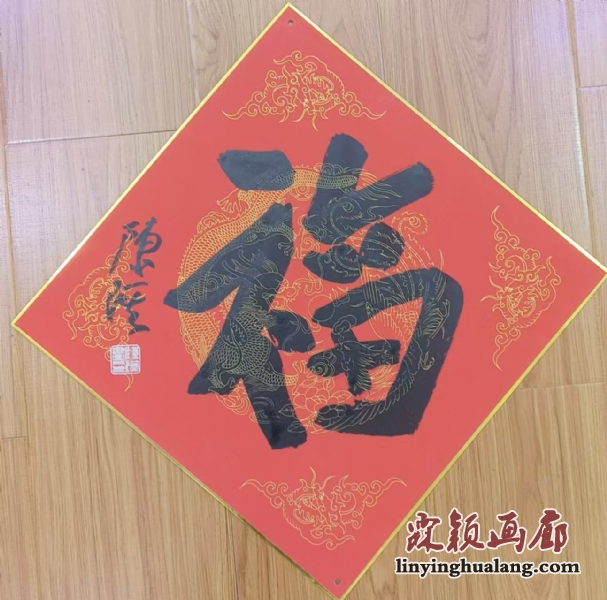 福
霖颖画廊
linyinghualang.com